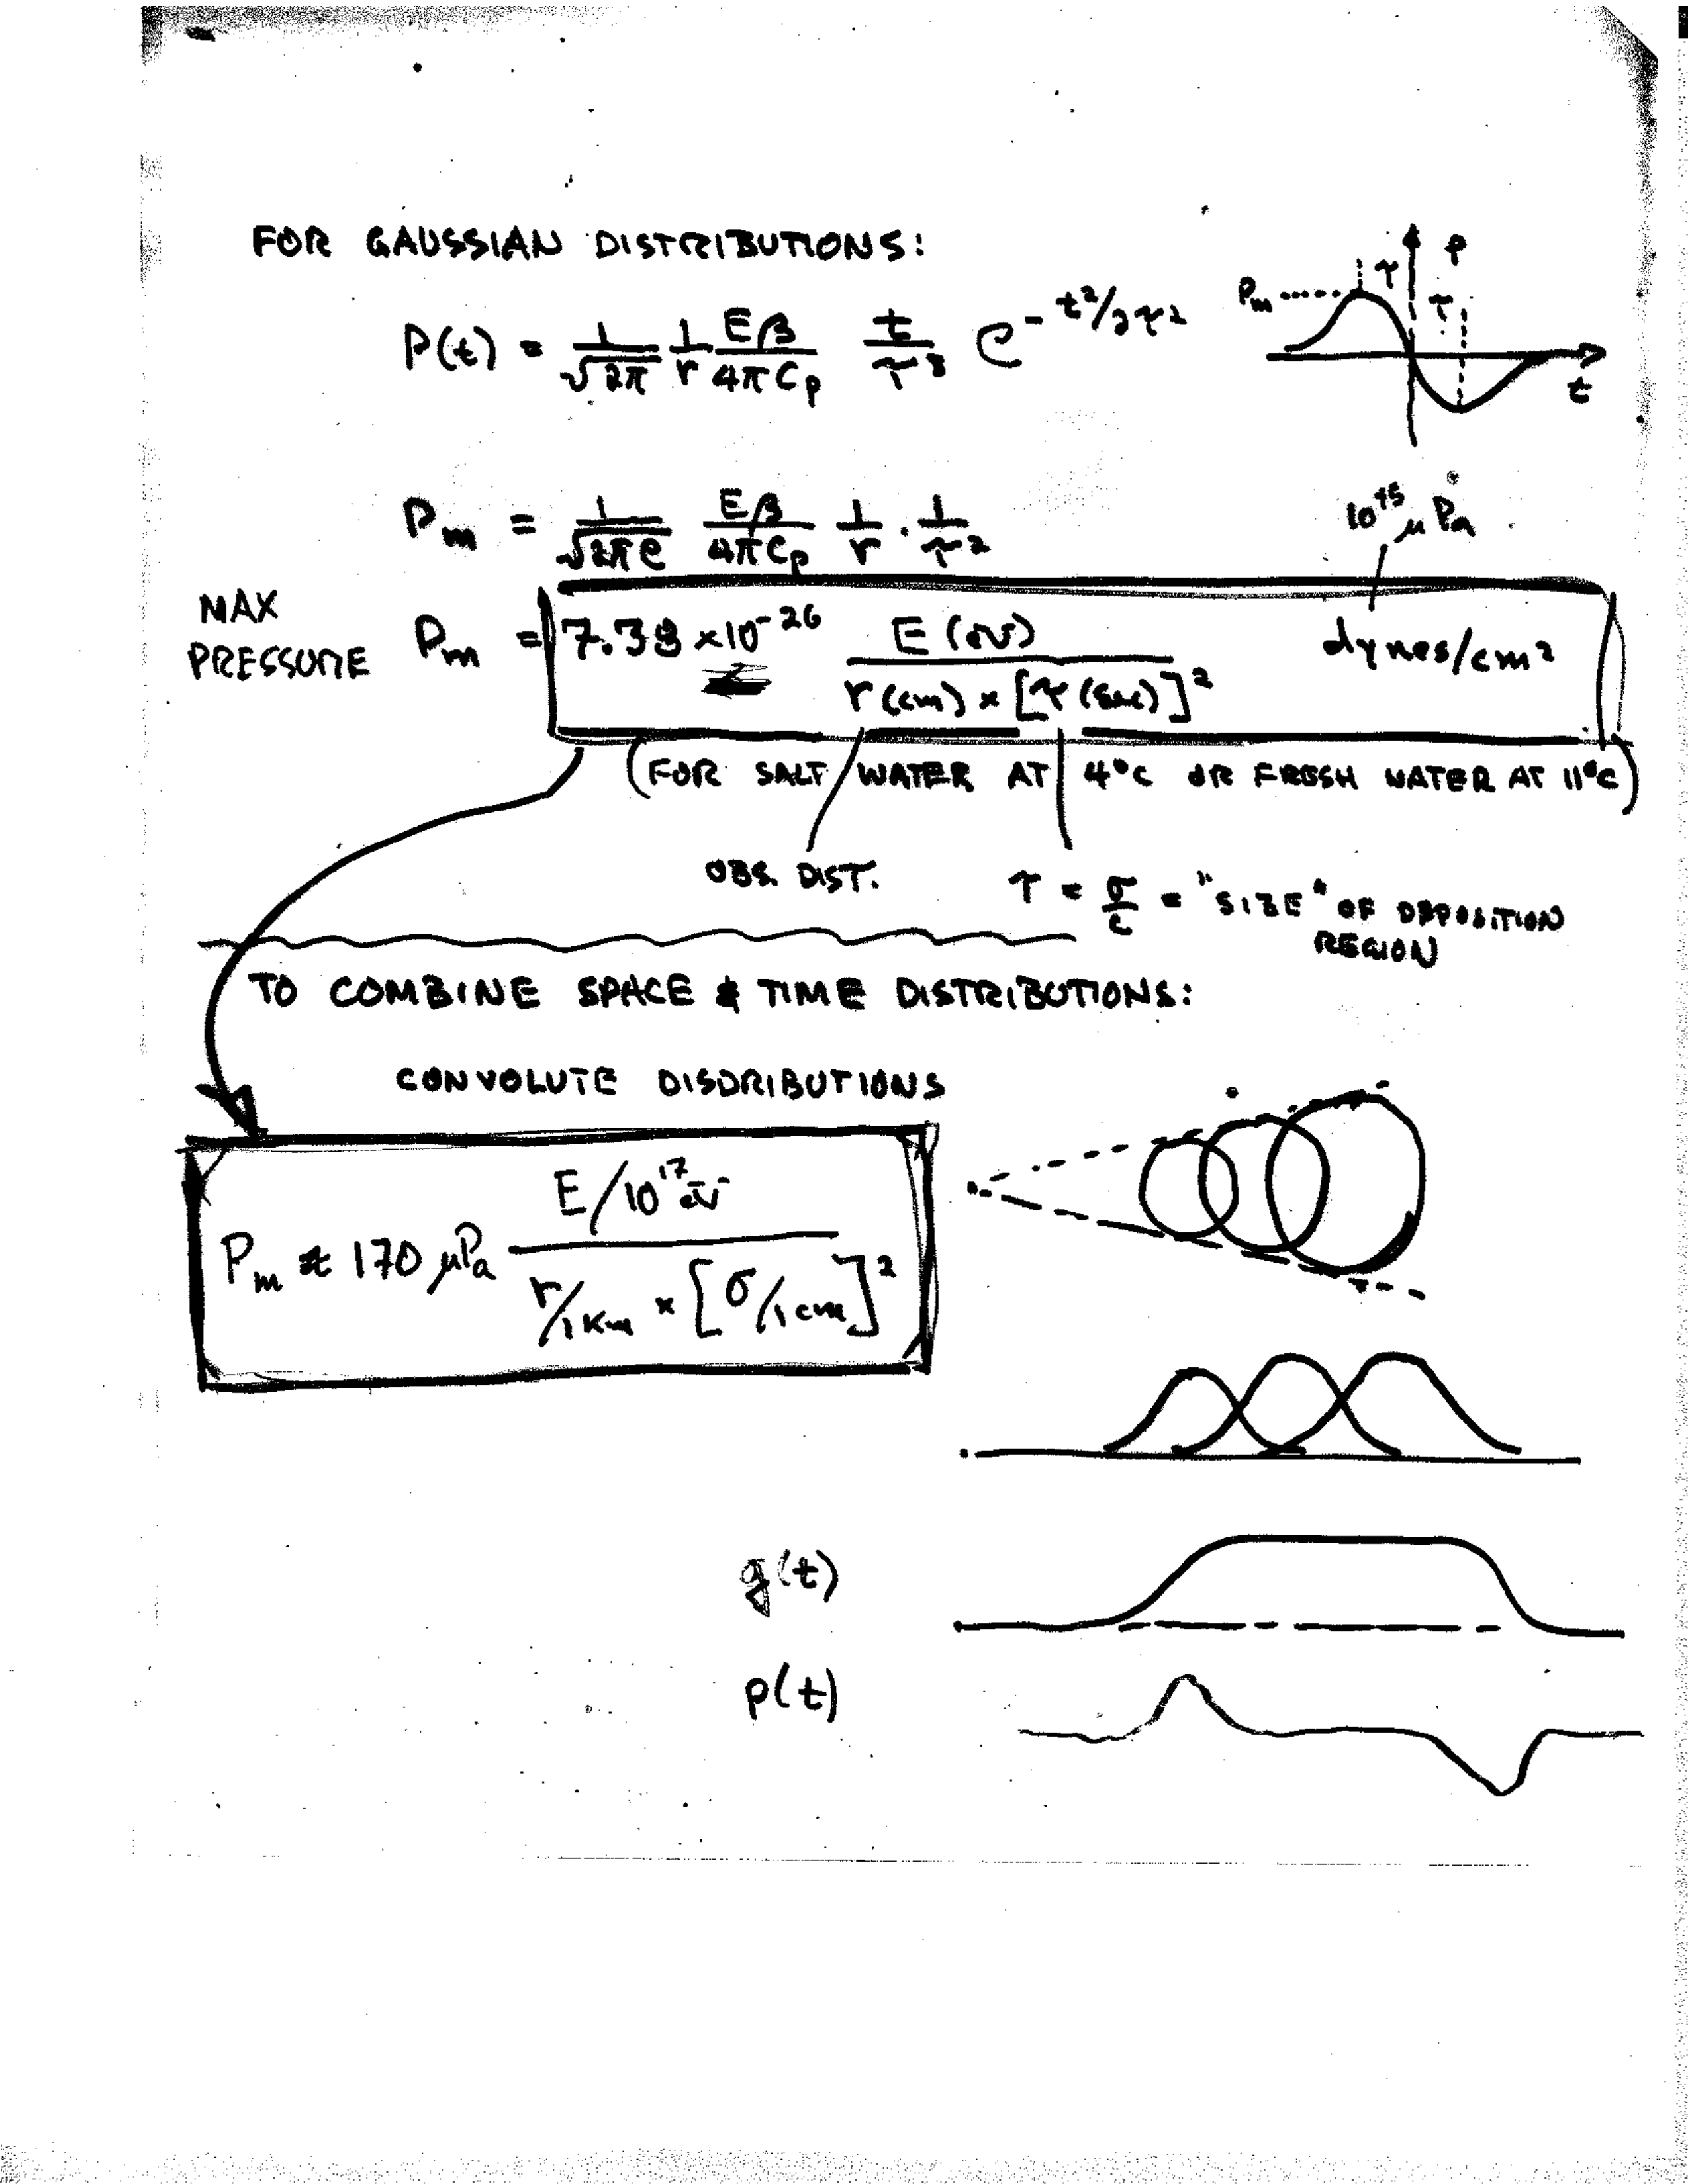 FOR GAUSSIAN DISTRIBUTIONS:
P(t) = 1/√2π 1/r Eβ/4πCp t/τ³ e^-t²/2τ²
Pm τ P τ t
Pm = 1/√2πe Eβ/4πCp 1/r · 1/τ²
10^+5 μPa
MAX PRESSURE Pm = 7.38 ×10^-26 E (eV)/r(cm) × [τ(sec)]² dynes/cm²
(FOR SALT WATER AT 4°C OR FRESH WATER AT 11°C)
OBS. DIST.
τ = σ/c = "SIZE" OF DEPOSITION
REGION
TO COMBINE SPACE & TIME DISTRIBUTIONS:
CONVOLUTE DISDRIBUTIONS
Pm ≈ 170 μPa E/10^17 eV / r/1Km × [σ/1cm]²
g(t)
p(t)